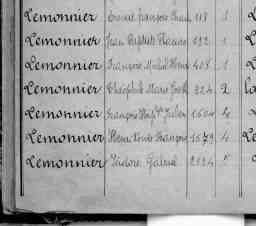 Lemonnier Emile François Jean 118 1
Lemonnier Jean Baptiste 192 1
Lemonnier François Michel 408 1
Lemonnier Théophile Marie 824 2
Lemonnier François Julien 1504 4
Lemonnier Louis François 1579 4
Lemonnier Isidore Gabriel 2124 5